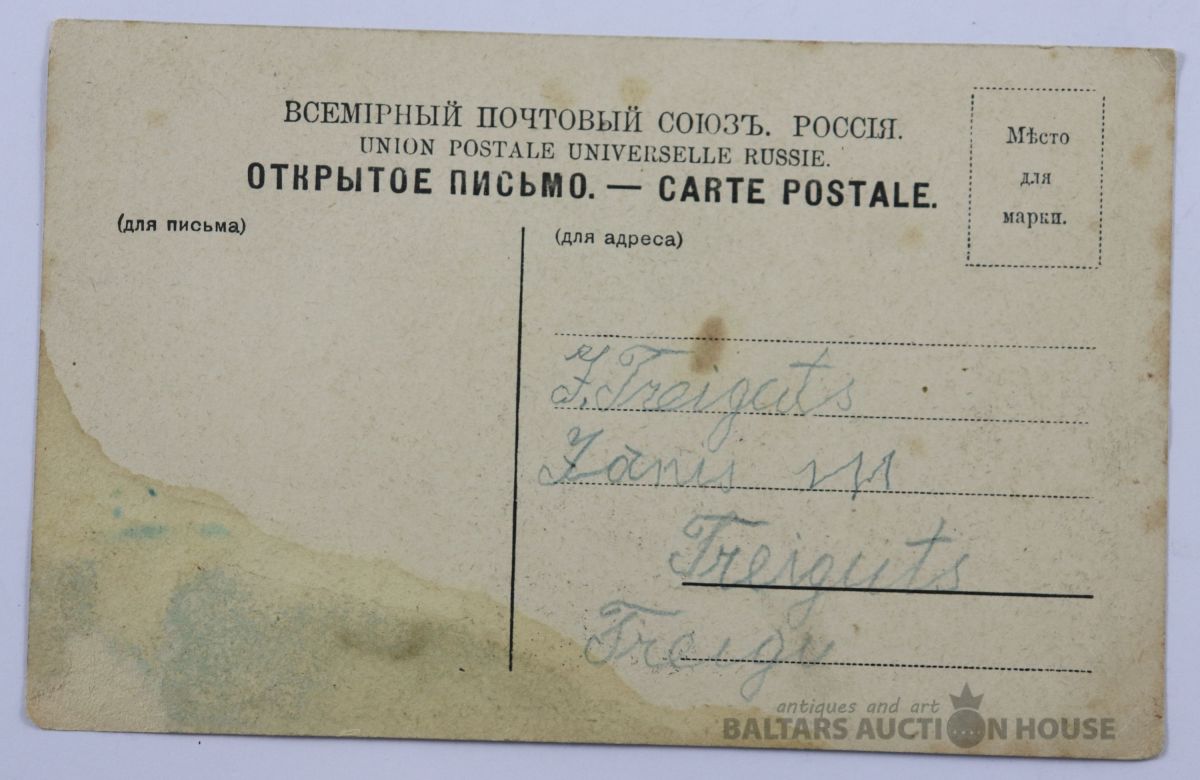 ВСЕМІРНЫЙ ПОЧТОВЫЙ СОЮЗЪ. РОССІЯ.
UNION POSTALE UNIVERSELLE RUSSIE.
ОТКРЫТОЕ ПИСЬМО. — CARTE POSTALE.
Мѣсто
для
марки.
(для письма)
(для адреса)
J. Treiguts
Jānis
Treiguts
Treigu
antiques and art
BALTARS AUCTION HOUSE